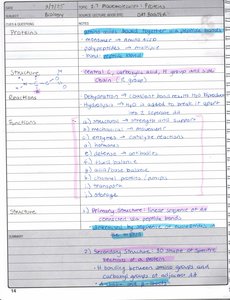 DATE 9/9/25 TOPIC 2.7 Macromolecules: Proteins
SUBJECT Biology
CUES & QUESTIONS NOTES
Proteins
amino acids bound together via peptide bonds
- monomer → amino acid
- polypeptides → multiple
- bond: peptide bond
Structure
Central C, carboxylic acid, H group and side
chain (R group)
Reactions
Dehydration →
Hydrolysis → H₂O is added to break it apart
into 2 separate aa
Functions
a.) structure → strength and support
b.) mechanical → movement
c.) enzymes → catalyze reactions
d.) hormones
e.) defense → antibodies
f.) fluid balance
g.) acid/base balance
h.) channel proteins / pumps
i.) transport
j.) storage
Structure
1.) Primary Structure - linear sequence of aa
connected via peptide bonds
- determined by sequence of nucleotides in
SUMMARY
2.) Secondary Structure - 3D shape of specific
sections of a protein
- H bonding between amino groups and
carboxyl groups of adjacent aa
14